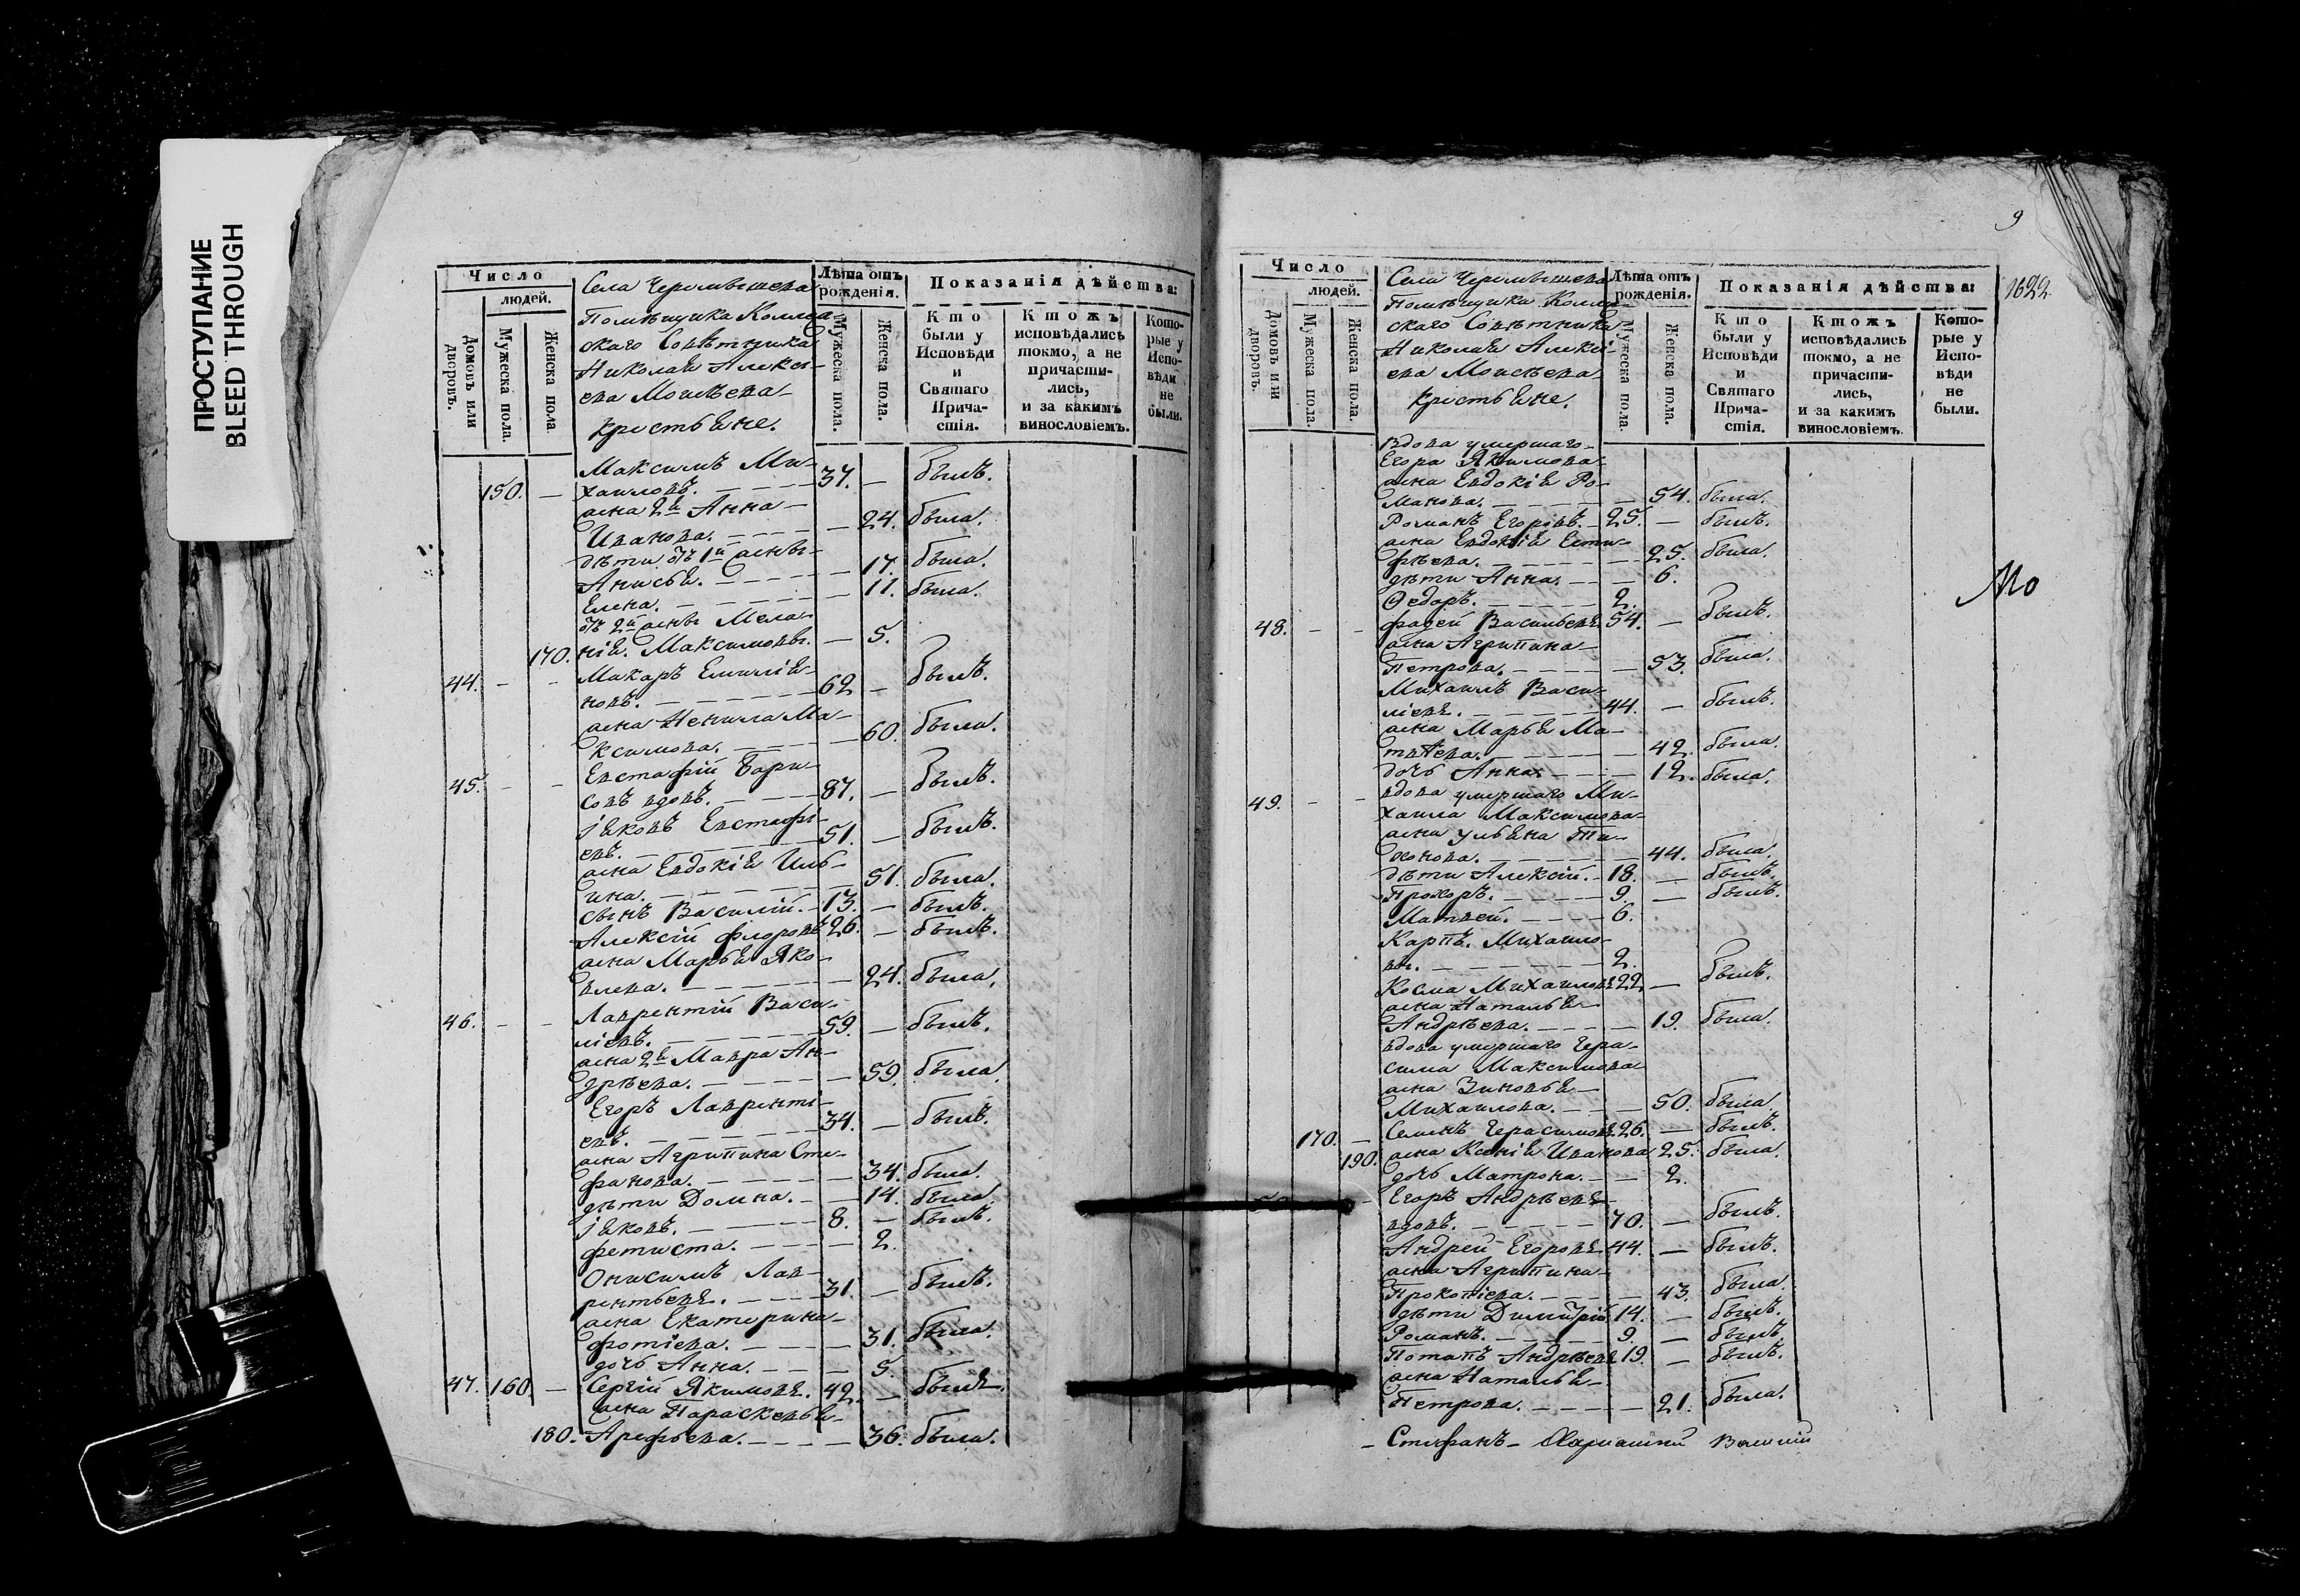 ПРОСТУПАНИЕ
BLEED THROUGH
Число
людей.
Домовъ или дворовъ.
Мужеска пола.
Женска пола.
Села
Помѣщика
скаго Совѣтника
Николая Алекси-
ева Моисѣева
крестьяне.
Лѣта отъ рожденія.
Мужеска пола.
Женска пола.
Показанія дѣйства:
Кто были у Исповѣди и Святаго Причастія.
Ктожъ исповѣдались токмо, а не причастились, и за какимъ винословіемъ.
Которые у Исповѣди не были.
Максимъ Ми-
150. — хаиловъ. — 37. — былъ.
жена 2я Анна
Иванова. — 24. была.
дѣти отъ 1й жены
Анисья. — 17. была.
Елена. — 11. была.
отъ 2й жены Мела-
170. нія. Максимовы. — 5.
44. — — Макаръ Емилія-
новъ. — 62 — былъ.
жена Ненила Ма-
ксимова. — 60. была.
45. — — Евстафій Бори-
совъ вдовъ. — 87. — былъ.
Іяковъ Евстафі-
евъ. — 51. — былъ.
жена Евдокія Иль-
ина. — 51. была.
сынъ Василій. — 13. — былъ.
Алексій Флоровъ 26. — былъ.
жена Марья Яко-
влева. — 24. была.
46. — — Лаврентій Васи-
ліевъ. — 59. — былъ.
жена 2я Мавра Ан-
дрѣева. — 59. была.
Егоръ Лавренті-
евъ. — 34. — былъ.
жена Агрипина Сте-
фанова. — 34. была.
дѣти Домна. — 14. была.
Іяковъ. — 8. — былъ.
Фетиста. — 2.
Онисимъ Лав-
рентьевъ. — 31. — былъ.
жена Екатерина
Фотіева. — 31. была.
дочь Анна. — 5.
47. 160 — Сергій Якимовъ. 42. — былъ.
жена Параскевья
180. Арефьева. — 36. была.
9
1622.
Число
людей.
Домовъ или дворовъ.
Мужеска пола.
Женска пола.
Села
Помѣщика
скаго Совѣтника
Николая Алексі-
ева Моисѣева
крестьяне.
Лѣта отъ рожденія.
Мужеска пола.
Женска пола.
Показанія дѣйства:
Кто были у Исповѣди и Святаго Причастія.
Ктожъ исповѣдались токмо, а не причастились, и за какимъ винословіемъ.
Которые у Исповѣди не были.
вдова умершаго
Егора Якимова
жена Евдокія Ро-
манова. — 54. была.
Романъ Егоровъ. — 25. — былъ.
жена Евдокія Ести-
фѣева. — 25. была.
дѣти Анна. — 6.
Ѳедоръ. — 2.
48. — — Фадей Васильевъ 54. — былъ.
жена Агрипина
Петрова. — 53. была.
Михаилъ Васи-
ліевъ. — 44. — былъ.
жена Марья Ма-
твѣева. — 42. была.
дочь Анна. — 12. была.
49. — — вдова умершаго Ми-
хаила Максимова
жена Ульяна Ти-
хонова. — 44. была.
дѣти Алексій. — 18. — былъ.
Прохоръ. — 9. — былъ.
Матвей. — 6.
Карпъ. Михаило-
вы. — 2.
Косма Михаиловъ 22 — былъ.
жена Наталья
Андрѣева. — 19. была.
вдова умершаго Гера-
сима Максимова
жена Зиновья
Михаилова. — 50. была.
170. — Семенъ Герасимовъ 26. — былъ.
190. жена Ксенія Иванова 25. была.
дочь Матрона. — 2.
— Егоръ Андрѣевъ
вдовъ. — 70. — былъ.
Андрей Егоровъ 44. — былъ.
жена Агрипина
Прокопіева. — 43. была.
дѣти Димитрій 14. — былъ.
Романъ. — 9. — былъ.
Потапъ Андрѣевъ 19. — былъ.
жена Наталья
Петрова. — 21. была.
Мо
— Стефанъ —